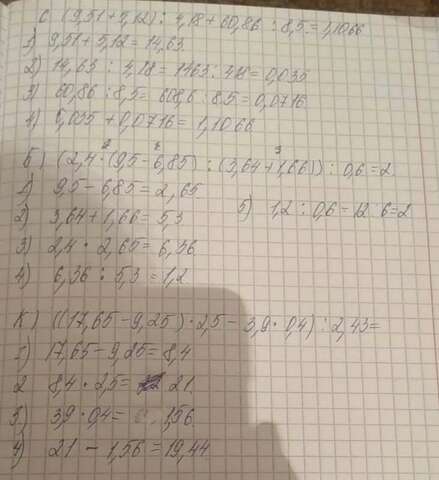 с. (9,51+5,12) : 4,18+60,86 : 8,5=1,1066
1) 9,51+5,12=14,63.
2) 14,63 : 4,18=1463 : 418=0,035
3) 60,86 : 8,5= 608,6 : 85=0,0716
4) 0,035 + 0,0716=1,1066
Б) (2,4 · (9,5-6,85) : (3,64+1,66)) : 0,6=2
1) 9,5-6,85=2,65
2) 3,64+1,66=5,3
5) 1,2 : 0,6=12 : 6=2
3) 2,4 · 2,65=6,36
4) 6,36 : 5,3=1,2
К) ((17,65-9,25) · 2,5-3,9 · 0,4) : 2,43=
1) 17,65-9,25=8,4
2 8,4 · 2,5= 21
3) 3,9 · 0,4= 1,56
4) 21 - 1,56=19,44